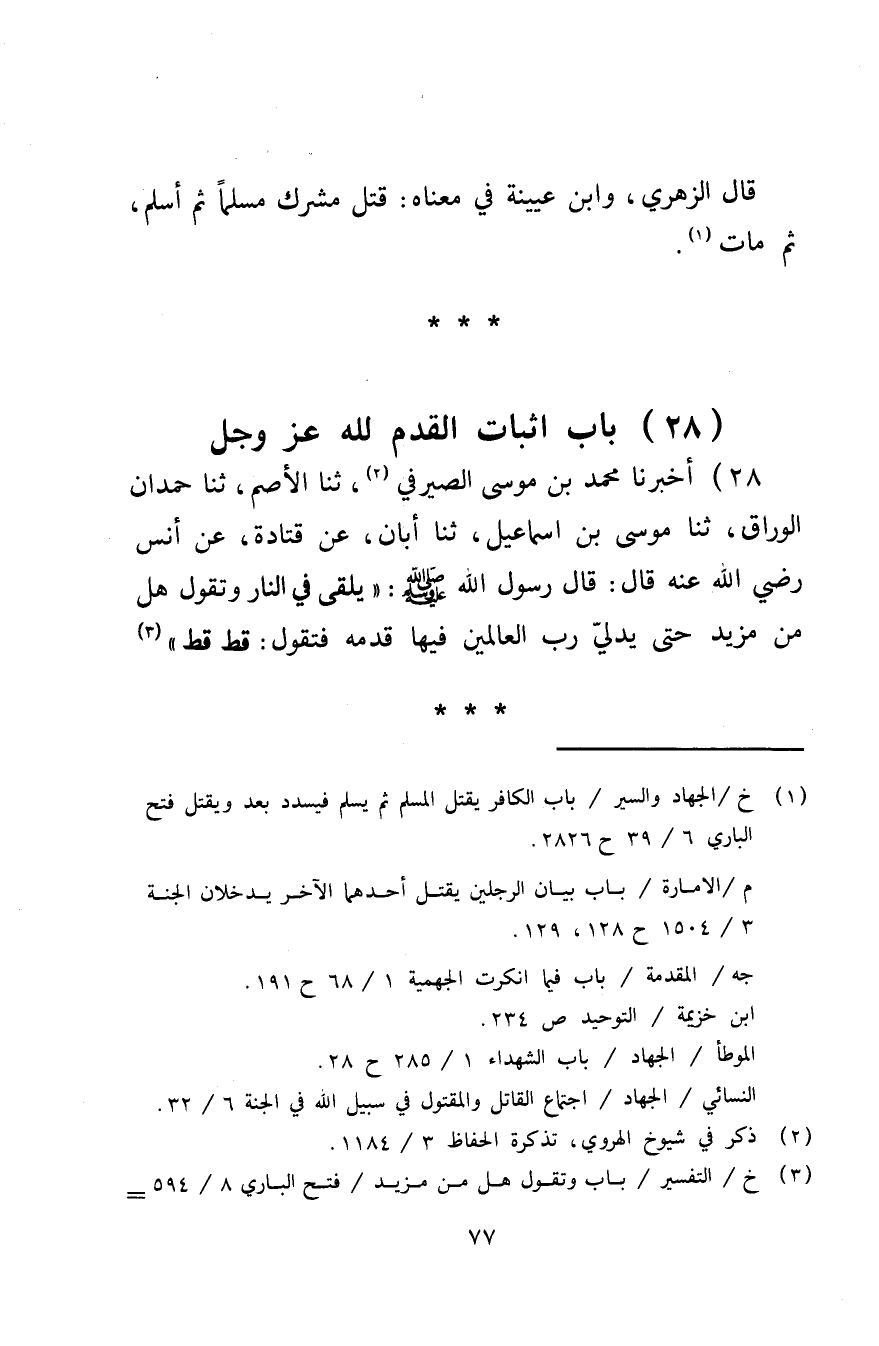 قال الزهري ، وابن عيينة في معناه : قتل مشرك مسلماً ثم أسلم ،
ثم مات (١) .
* * *
( ٢٨ ) باب اثبات القدم لله عز وجل
٢٨ ) أخبرنا محمد بن موسى الصيرفي (٢) ، ثنا الأصم ، ثنا حمدان
الوراق ، ثنا موسى بن اسماعيل ، ثنا أبان ، عن قتادة ، عن أنس
رضي الله عنه قال : قال رسول الله ﷺ : « يلقى في النار وتقول هل
من مزيد حتى يدليّ رب العالمين فيها قدمه فتقول : قط قط » (٣)
* * *
(١) خ / الجهاد والسير / باب الكافر يقتل المسلم ثم يسلم فيسدد بعد ويقتل فتح
الباري ٦ / ٣٩ ح ٢٨٢٦ .
م / الامارة / باب بيان الرجلين يقتل أحدهما الآخر يدخلان الجنة
٣ / ١٥٠٤ ح ١٢٨ ، ١٢٩ .
جه / المقدمة / باب فيما انكرت الجهمية ١ / ٦٨ ح ١٩١ .
ابن خزيمة / التوحيد ص ٢٣٤ .
الموطأ / الجهاد / باب الشهداء ١ / ٢٨٥ ح ٢٨ .
النسائي / الجهاد / اجتماع القاتل والمقتول في سبيل الله في الجنة ٦ / ٣٢ .
(٢) ذكر في شيوخ الهروي ، تذكرة الحفاظ ٣ / ١١٨٤ .
(٣) خ / التفسير / باب وتقول هل من مزيد / فتح الباري ٨ / ٥٩٤ =
٧٧